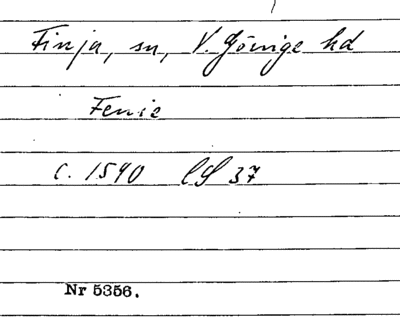 Finja, sn, V. Göinge hd
Fenie
c. 1590 LS 37
Nr 5356.